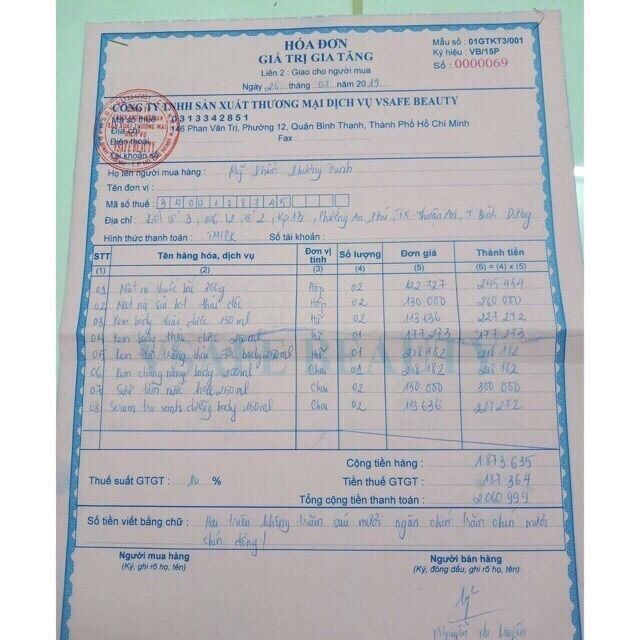 HÓA ĐƠN
GIÁ TRỊ GIA TĂNG
Liên 2 : Giao cho người mua
Ngày 26 tháng 03 năm 2019
Mẫu số : 01GTKT3/001
Ký hiệu : VB/15P
Số : 0000069
CÔNG TY TNHH SẢN XUẤT THƯƠNG MẠI DỊCH VỤ VSAFE BEAUTY
Mã số thuế : 0313342851
Địa chỉ : 146 Phan Văn Trị, Phường 12, Quận Bình Thạnh, Thành Phố Hồ Chí Minh
Điện thoại : Fax :
Số tài khoản :
Họ tên người mua hàng : Mỹ Phẩm Phương
Tên đơn vị :
Mã số thuế : 3400138745
Địa chỉ : Tổ 2, Kp 1B, Phường An Phú, TX Thuận An, T Bình Dương
Hình thức thanh toán : TM/CK Số tài khoản :
STT Tên hàng hóa, dịch vụ Đơn vị tính Số lượng Đơn giá Thành tiền
(1) (2) (3) (4) (5) (6) = (4) x (5)
01 Mặt nạ thuốc bắc 300g Hộp 02 122727 245.454
02 Mặt nạ sủi bọt thải độc Hộp 02 130 000 260 000
03 Kem body thảo dược 150ml Hũ 02 113636 227272
04 Kem body thảo dược 250ml Hũ 01 177273 177273
05 Kem tắm trắng thải độc body 250ml Hũ 01 218182 218182
06 Kem chống nắng body 200ml Chai 01 218182 218182
07 Sữa tắm nước hoa 250ml Chai 02 150 000 300 000
08 Serum trà xanh dưỡng body 150ml Chai 02 113636 227272
VSAFE BEAUTY
Cộng tiền hàng : 1873635
Thuế suất GTGT : 10 % Tiền thuế GTGT : 187364
Tổng cộng tiền thanh toán : 2060999
Số tiền viết bằng chữ : Hai triệu không trăm sáu mươi ngàn chín trăm chín mươi
chín đồng!
Người mua hàng
(Ký, ghi rõ họ, tên)
Người bán hàng
(Ký, đóng dấu, ghi rõ họ, tên)
Nguyễn Thị